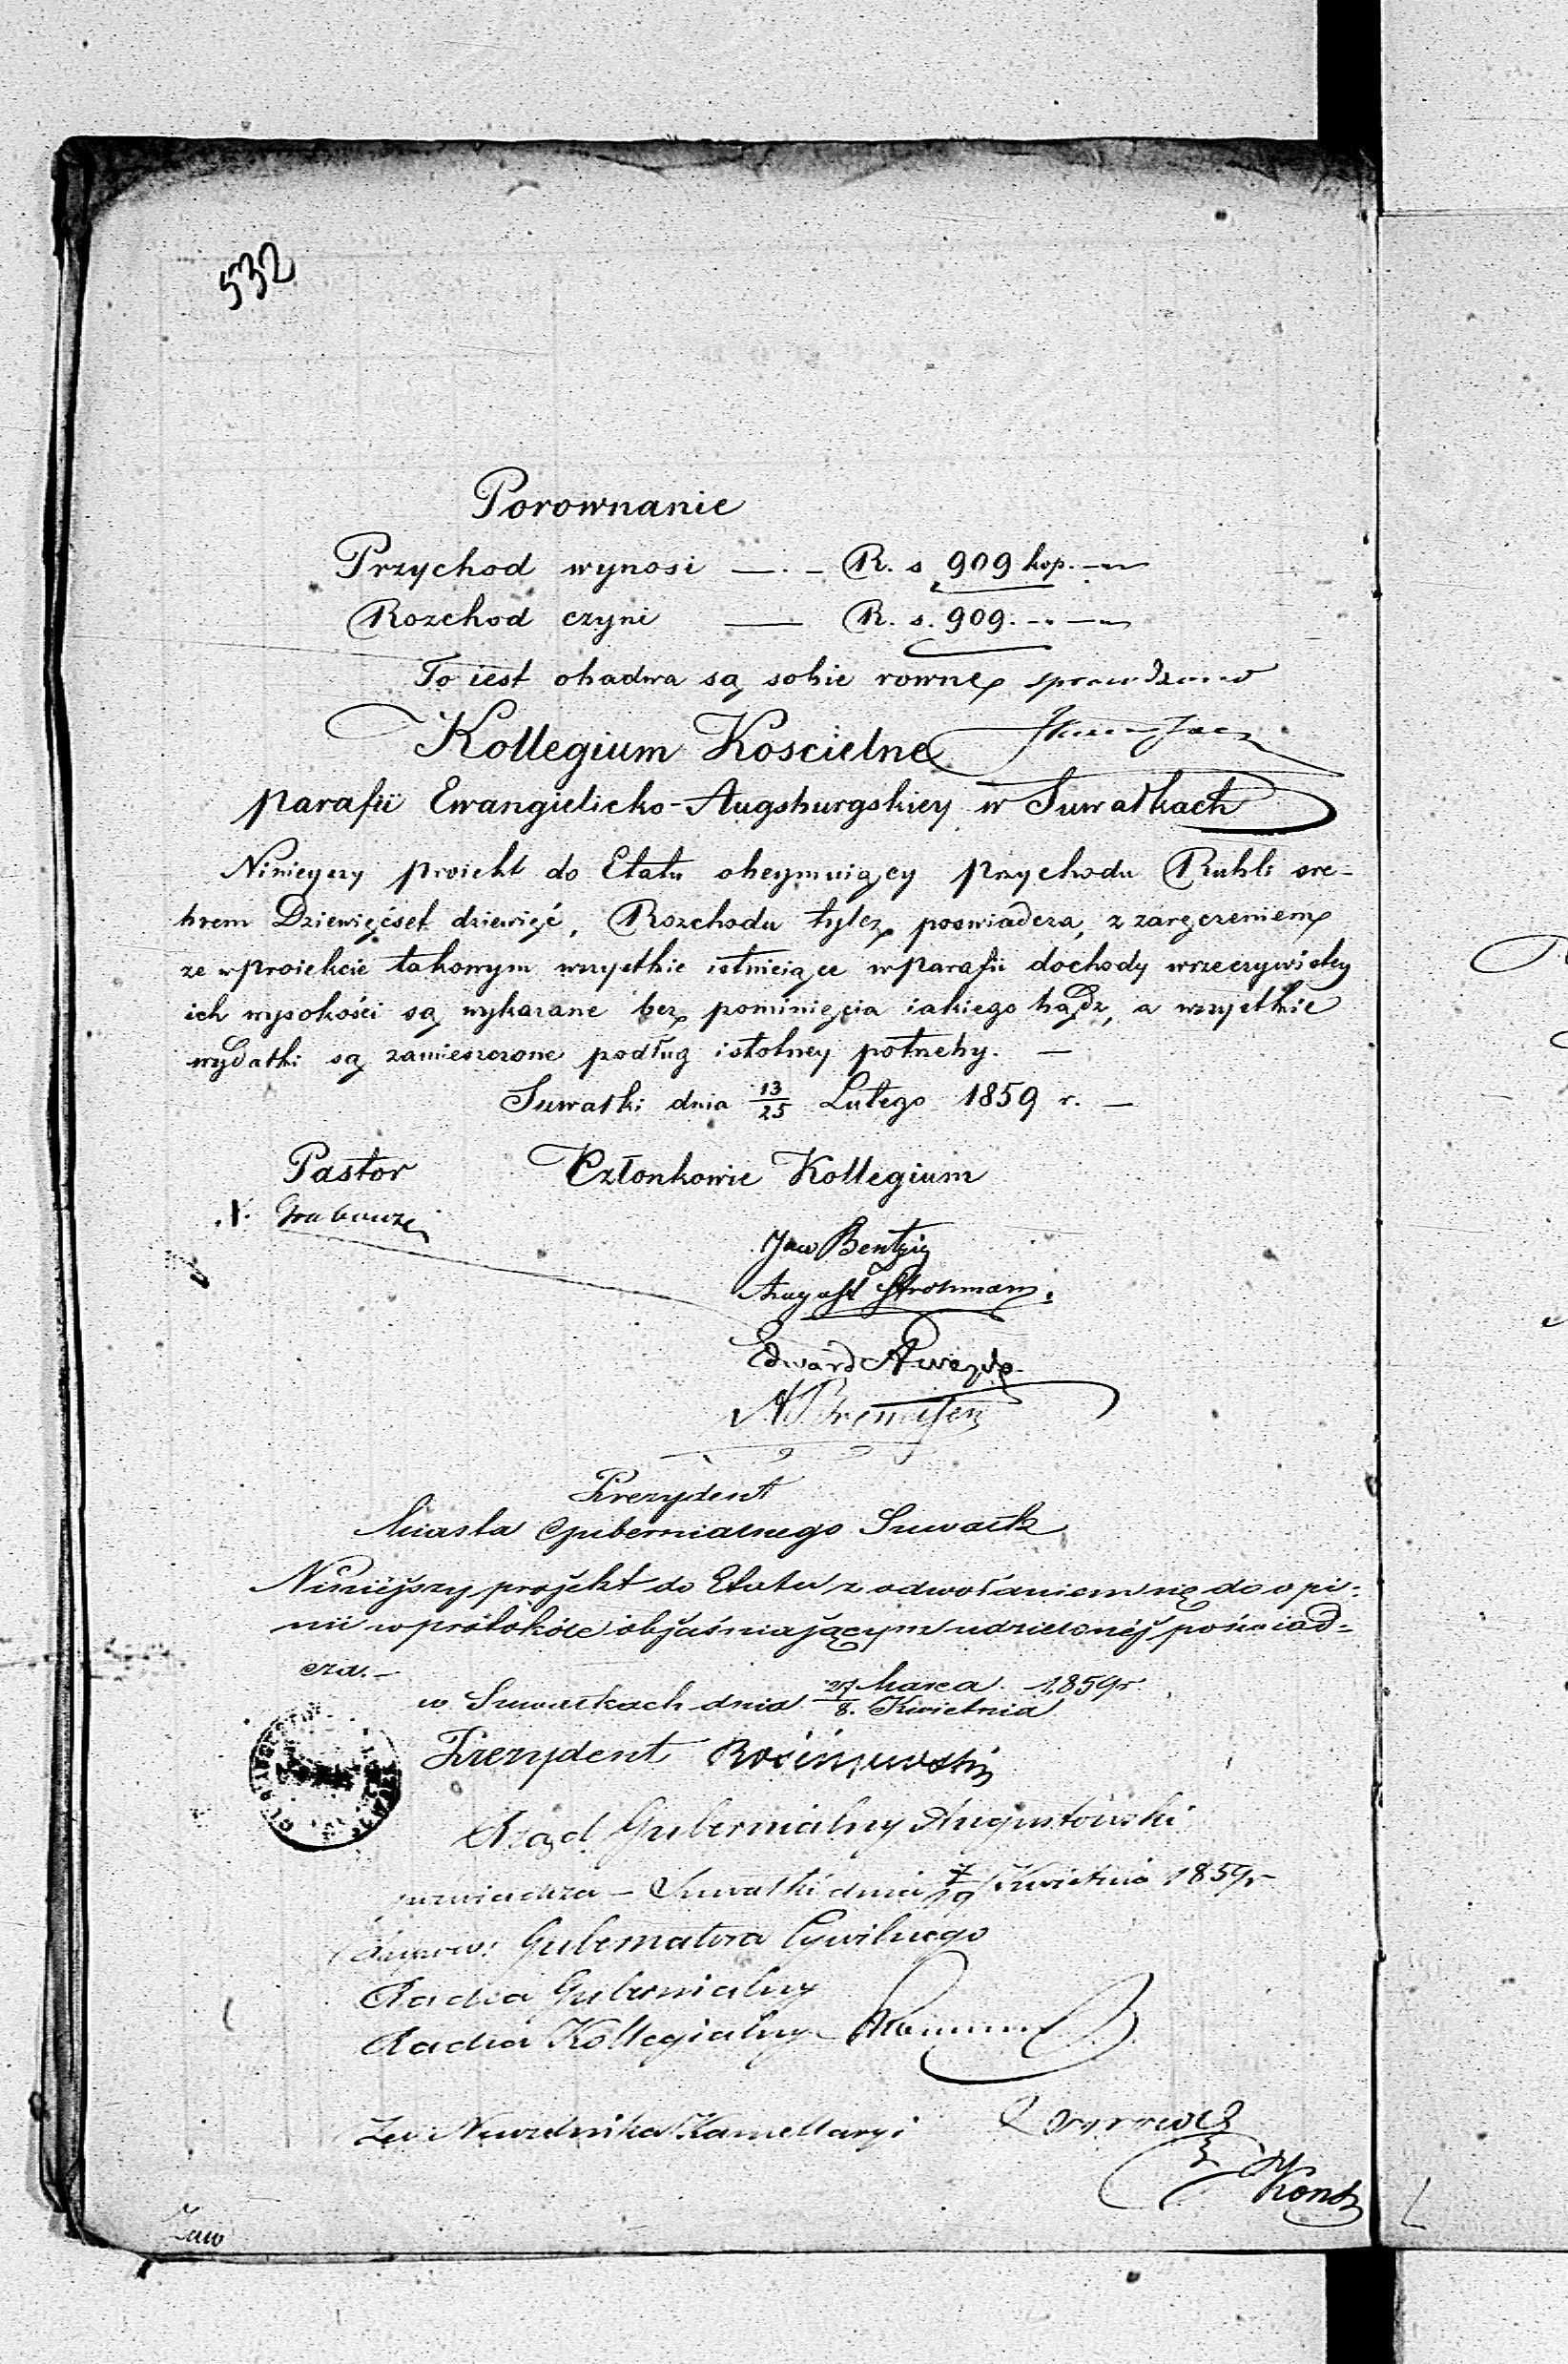 532
Porownanie
Przychod wynosi —.– R. s 909 kop. –„–
Rozchod czyni — R. s. 909. –„ –„–
To iest obadwa są sobie rowne sprawdzono
Kollegium Koscielne
parafii Ewangielicko-Augsburgskiey w Suwałkach
Ninieyszy proiekt do Etatu obeymuiący przychodu Rubli sre-
brem Dziewięćset dziewięć, Rozchodu tylez poswiadcza, z zaręczeniem
ze w proiekcie takowym wszystkie istnieiące w parafii dochody w rzeczywistey
ich wysokości są wykazane bez pominięcia iakiego bądz, a wszystkie
wydatki są zamieszczone podług istotney potrzeby. —
Suwałki dnia 13/25 Lutego 1859 r. —
Pastor Członkowie Kollegium
Jan Bentzig
August Strohmann.
Edward
Prezydent
Miasta Gubernialnego Suwałk
Niniejszy projekt do Etatu z odwołaniem się do opi-
nii w protokóle objaśniającym udzielonéj poświad-
cza.–
w Suwałkach dnia 27 Marca / 8. Kwietnia 1859r.
Prezydent
Rząd Gubernialny Augustowski
poswiadcza – Suwałki dnia 7/19 Kwietnia 1859r
Gubernatora Cywilnego
Radca Gubernialny
Radca Kollegialny
Za Naczelnika Kancellaryi
Zaw